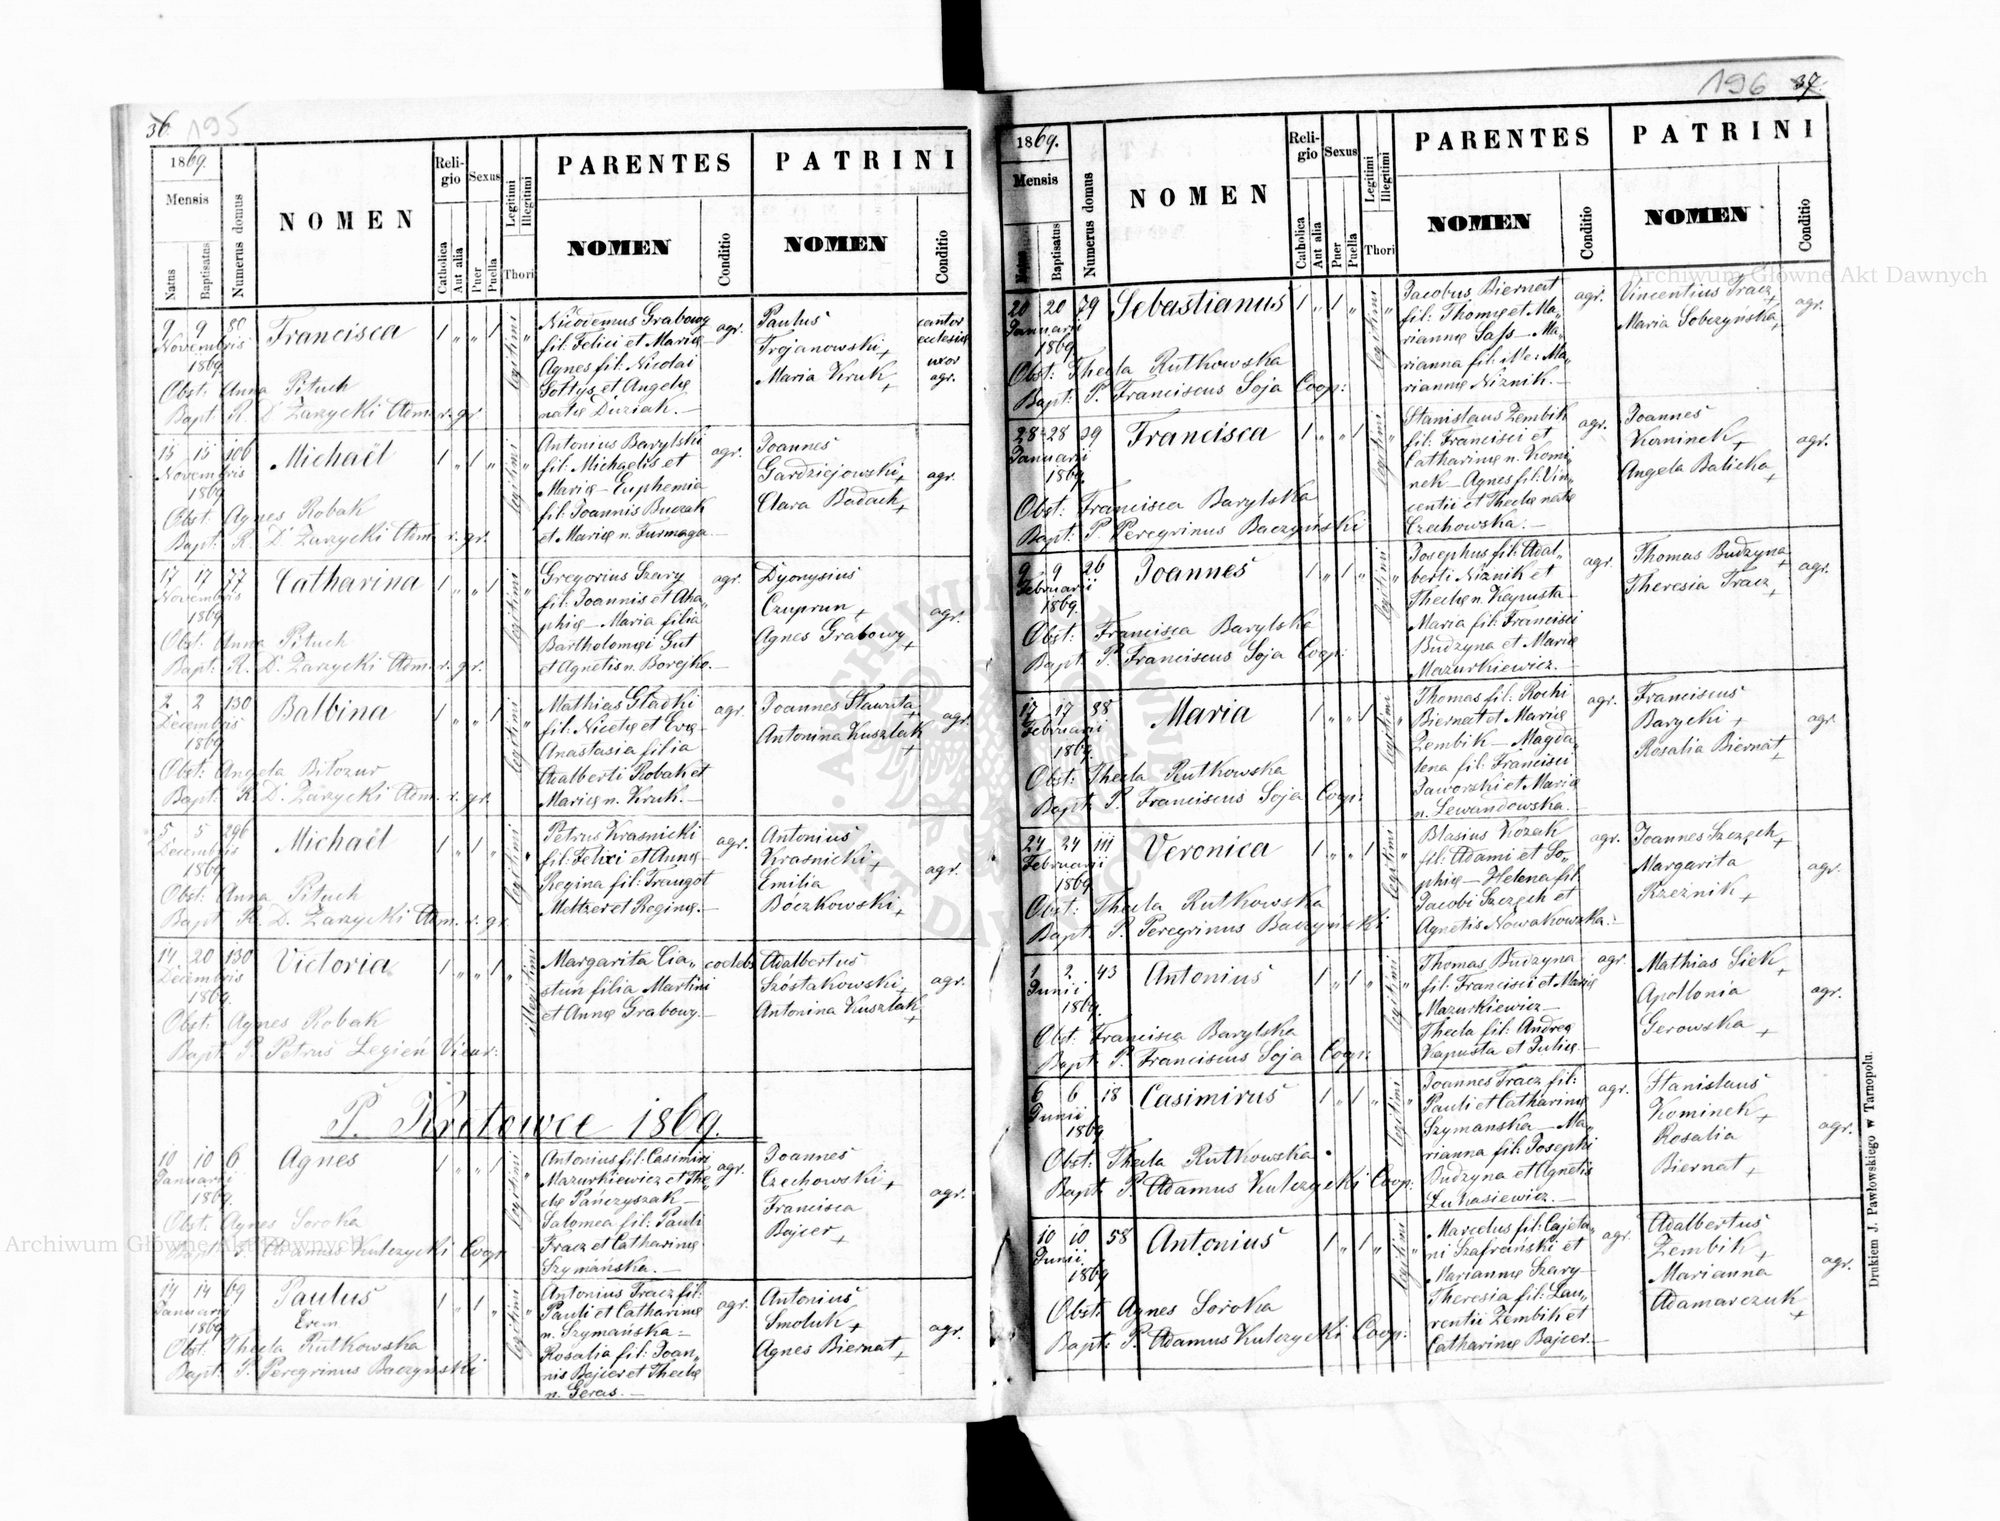 36. 195
1869.
Mensis
Natus
Baptisatus
Numerus domus
NOMEN
Religio
Catholica
Aut alia
Sexus
Puer
Puella
Legitimi
Illegitimi
Thori
PARENTES
NOMEN
Conditio
PATRINI
NOMEN
Conditio
9 9 80 Francisca 1 „ „ 1 legitimi „
Novembris
1869
Obst: Anna Pituch
Bapt: R. D. Zarzycki Adm. r. gr.
Nicodemus Grabowy agr.
fil: Felici et Mariæ
Agnes fil: Nicolai
Sottys et Angelæ
natæ Duziak. —
Paulus cantor
Trojanowski + ecclesiæ
Maria Kruk + uxor
agr.
15 15 106 Michaël 1 „ 1 „ legitimi „
Novembris
1869
Obst: Agnes Robak
Bapt: R. D. Zarzycki Adm. r. gr.
Antonius Barylski agr.
fil: Michaelis et
Mariæ — Euphemia
fil: Joannis Buczak
et Mariæ n. Furmaga —
Joannes
Gardziejowski + agr.
Clara Badach +
17 17 77 Catharina 1 „ „ 1 legitimi „
Novembris
1869
Obst: Anna Pituch
Bapt: R. D. Zarzycki Adm. r. gr.
Gregorius Szary agr.
fil: Joannis et Aha„
phiæ — Maria filia
Bartholomæi Gut
et Agnetis n. Borejko. —
Dyonysius
Czuprun + agr.
Agnes Grabowy +
2 2 130 Balbina 1 „ „ 1 legitimi „
Decembris
1869
Obst: Angela Bilozur
Bapt: R. D. Zarzycki Adm. r. gr.
Mathias Gladki agr.
fil: Nicetæ et Evæ —
Anastasia filia
Adalberti Robak et
Mariæ n. Kruk. —
Joannes Hawryta + agr.
Antonina Kusztak +
5 5 296 Michaël 1 „ 1 „ legitimi „
Decembris
1869
Obst: Anna Pituch
Bapt: R. D. Zarzycki Adm. r. gr.
Petrus Krasnicki agr.
fil: Felixi et Annæ —
Regina fil: Traugot
Meltzer et Reginæ. —
Antonius
Krasnicki + agr.
Emilia
Boczkowski +
14 20 130 Victoria 1 „ „ 1 „ illegitimi
Decembris
1869.
Obst: Agnes Robak
Bapt: P. Petrus Legień Vicar:
Margarita Cia„ coelebs
stuń filia Martini
et Annæ Grabowy. —
Adalbertus
Szostakowski + agr.
Antonina Kusztak +
P. Kretowce 1869.
10 10 6 Agnes 1 „ „ 1 legitimi „
Januarii
1869.
Obst: Agnes Soroka
Bapt: P. Adamus Kulczycki Coop:
Antonius fil: Casimiri agr.
Mazurkiewicz et The„
clæ Pańczyszak —
Salomea fil: Pauli
Tracz et Catharinæ
Szymańska. —
Joannes
Czechowski + agr.
Francisca
Bajcer +
14 14 69 Paulus 1 „ 1 „ legitimi „
Januarii Erem
1869
Obst: Thecla Rutkowska
Bapt: P. Peregrinus Baczyński
Antonius Tracz fil: agr.
Pauli et Catharinæ
n. Szymańska —
Rosalia fil: Joan„
nis Bajcer et Theclæ
n. Geras. —
Antonius
Smoluk + agr.
Agnes Biernat +
196 37.
1869.
Mensis
Natus
Baptisatus
Numerus domus
NOMEN
Religio
Catholica
Aut alia
Sexus
Puer
Puella
Legitimi
Illegitimi
Thori
PARENTES
NOMEN
Conditio
PATRINI
NOMEN
Conditio
20 20 79 Sebastianus 1 „ 1 „ legitimi „
Januarii
1869
Obst: Thecla Rutkowska
Bapt: P. Franciscus Soja Coop:
Jacobus Biernat agr.
fil: Thomæ et Ma„
riannæ Sass — Ma„
rianna fil: Ma„
riannæ Niznik. —
Vincentius Tracz + agr.
Maria Sobczyńska +
28 28 39 Francisca 1 „ „ 1 legitimi „
Januarii
1869.
Obst: Francisca Barylska
Bapt: P. Peregrinus Baczyński
Stanislaus Zembik agr.
fil: Francisci et
Catharinæ n. Komi„
nek — Agnes fil: Vin„
centii et Theclæ natæ
Czechowska. —
Joannes
Kaminek + agr.
Angela Balicka +
9 9 26 Joannes 1 „ 1 „ legitimi „
Februarii
1869.
Obst: Francisca Barylska
Bapt: P. Franciscus Soja Coop:
Josephus fil: Adal„ agr.
berti Niznik et
Theclæ n. Kapusta —
Maria fil: Francisci
Budzyna et Mariæ
Mazurkiewicz. —
Thomas Budzyna + agr.
Theresia Tracz +
17 17 88 Maria 1 „ „ 1 legitimi „
Februarii
1869.
Obst: Thecla Rutkowska
Bapt: P. Franciscus Soja Coop:
Thomas fil: Rochi agr.
Biernat et Mariæ
Zembik — Magda„
lena fil: Francisci
Jaworski et Mariæ
n. Lewandowska. —
Franciscus
Barycki + agr.
Rosalia Biernat +
24 24 111 Veronica 1 „ „ 1 legitimi „
Februarii
1869
Obst: Thecla Rutkowska
Bapt: P. Peregrinus Baczyński
Blasius Kozak agr.
fil: Adami et So„
phiæ — Helena fil:
Jacobi Szczęch et
Agnetis Nowakowska. —
Joannes Szczęch +
Margarita agr.
Rzeżnik +
1 2 43 Antonius 1 „ 1 „ legitimi „
Junii
1869.
Obst: Francisca Barylska
Bapt: P. Franciscus Soja Coop:
Thomas Budzyna agr.
fil: Francisci et Mariæ
Mazurkiewicz —
Thecla fil: Andreæ
Kapusta et Juliæ —
Mathias Siek +
Apollonia agr.
Gerowska +
6 6 18 Casimirus 1 „ 1 „ legitimi „
Junii
1869
Obst: Thecla Rutkowska
Bapt: P. Adamus Kulczycki Coop:
Joannes Tracz fil: agr.
Pauli et Catharinæ
Szymanska — Ma„
rianna fil: Josephi
Budzyna et Agnetis
Łukasiewicz. —
Stanislaus
Kominek + agr.
Rosalia
Biernat +
10 10 58 Antonius 1 „ 1 „ legitimi „
Junii
1869
Obst: Agnes Soroka
Bapt: P. Adamus Kulczycki Coop:
Marcelus fil: Cajeta„ agr.
ni Szafrański et
Mariannæ Szary —
Theresia fil: Lau„
rentii Zembik et
Catharinæ Bajcer. —
Adalbertus
Zembik + agr.
Marianna
Adamarczuk +
Drukiem J. Pawłowskiego w Tarnopolu.
Archiwum Główne Akt Dawnych
Archiwum Główne Akt Dawnych
ARCHIWUM GŁÓWNE AKT DAWNYCH